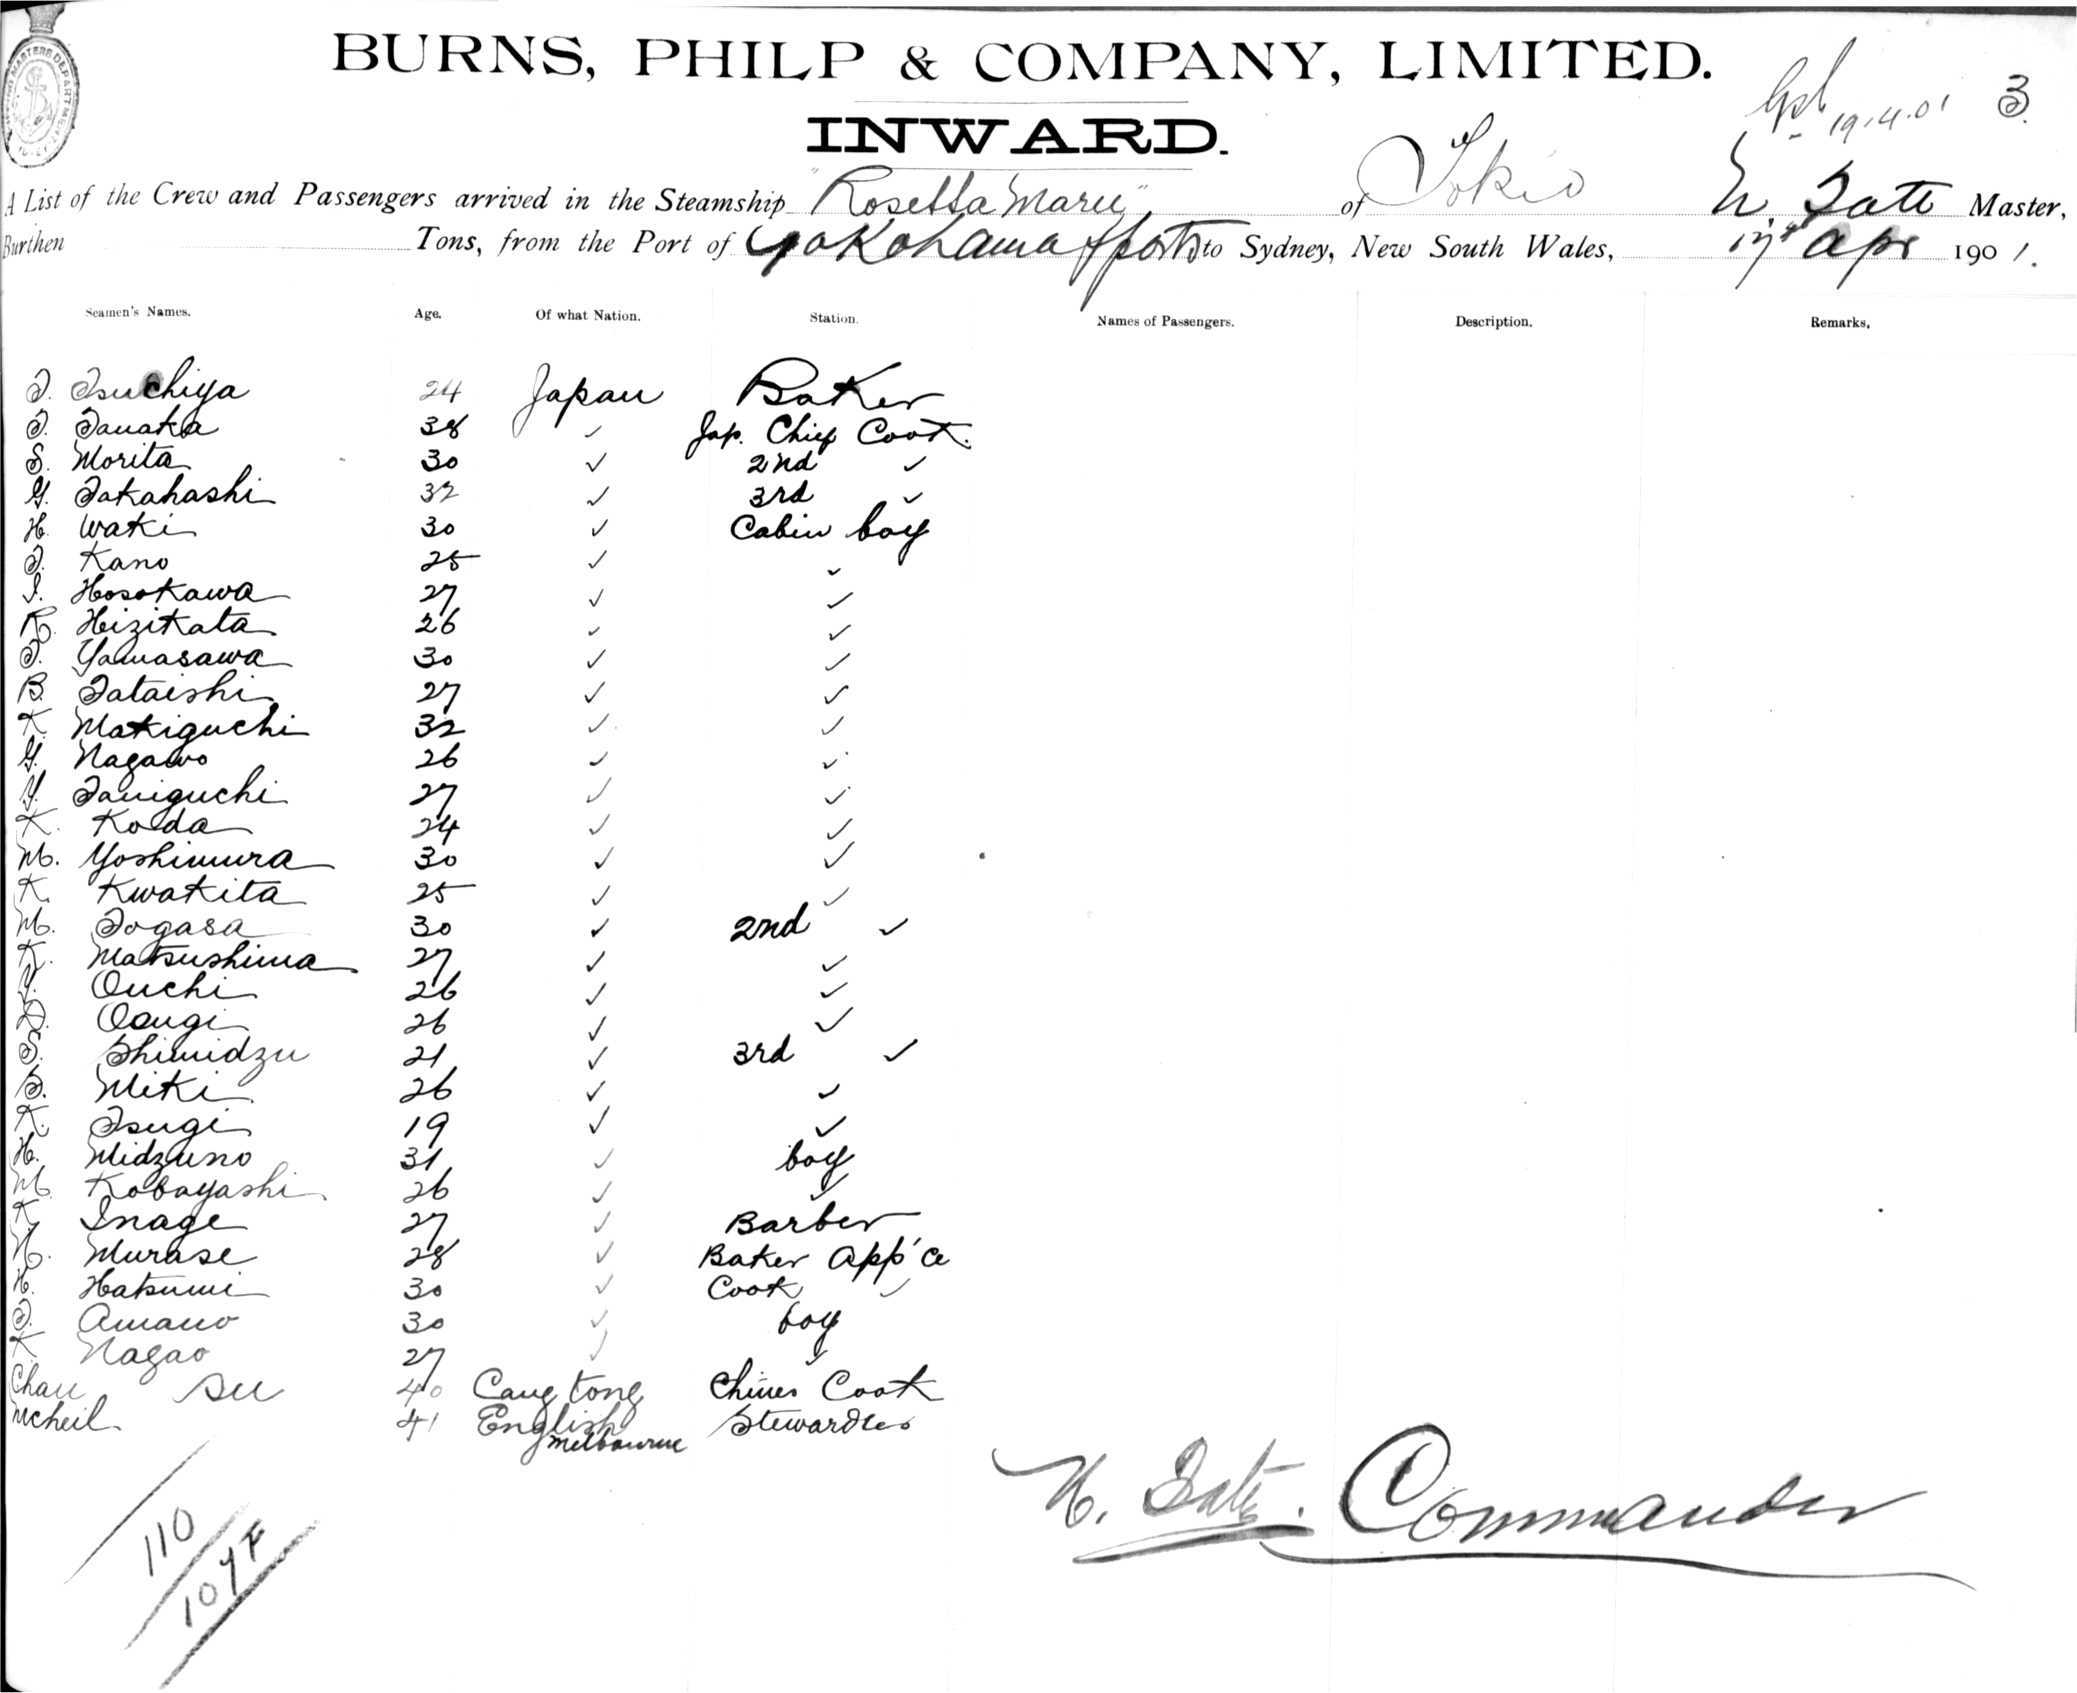 BURNS, PHILP & COMPANY, LIMITED.
3
19.4.01
INWARD.
A List of the Crew and Passengers arrived in the Steamship "Rosetta Maru" of Tokio N. Tate Master,
Burthen Tons, from the Port of Yokohama & ports to Sydney, New South Wales, 17th Apr 1901.
Seamen's Names. Age. Of what Nation. Station. Names of Passengers. Description. Remarks.
T. Tsuchiya 24 Japan Baker
T. Tanaka 38 ✓ Jap. Chief Cook.
S. Morita 30 ✓ 2nd ✓
G. Takahashi 32 ✓ 3rd ✓
H. Waki 30 ✓ Cabin boy
T. Kano 25 ✓ ✓
I. Hosokawa 27 ✓ ✓
R. Hizikata 26 ✓ ✓
T. Yamasawa 30 ✓ ✓
B. Tataishi 27 ✓ ✓
K. Makiguchi 32 ✓ ✓
G. Nagawo 26 ✓ ✓
Y. Taniguchi 27 ✓ ✓
K. Koda 24 ✓ ✓
M. Yoshimura 30 ✓ ✓
K. Kwakita 25 ✓ ✓
M. Togasa 30 ✓ 2nd ✓
K. Matsushima 27 ✓ ✓
Y. Ouchi 26 ✓ ✓
Oaugi 26 ✓ ✓
S. Shimidzu 21 ✓ 3rd ✓
S. Miki 26 ✓ ✓
K. Tsugi 19 ✓ ✓
H. Midzuno 31 ✓ boy
M. Kobayashi 26 ✓ ✓
K. Inage 27 ✓ Barber
N. Murase 28 ✓ Baker App'ce
H. Hatsumi 30 ✓ Cook ✓
T. Amano 30 ✓ boy
K. Nagao 27 ✓ ✓
Chau Su 40 Cang tong Chines Cook
McNeil 41 English Stewardess
Melbourne
N. Tate. Commander
110
107